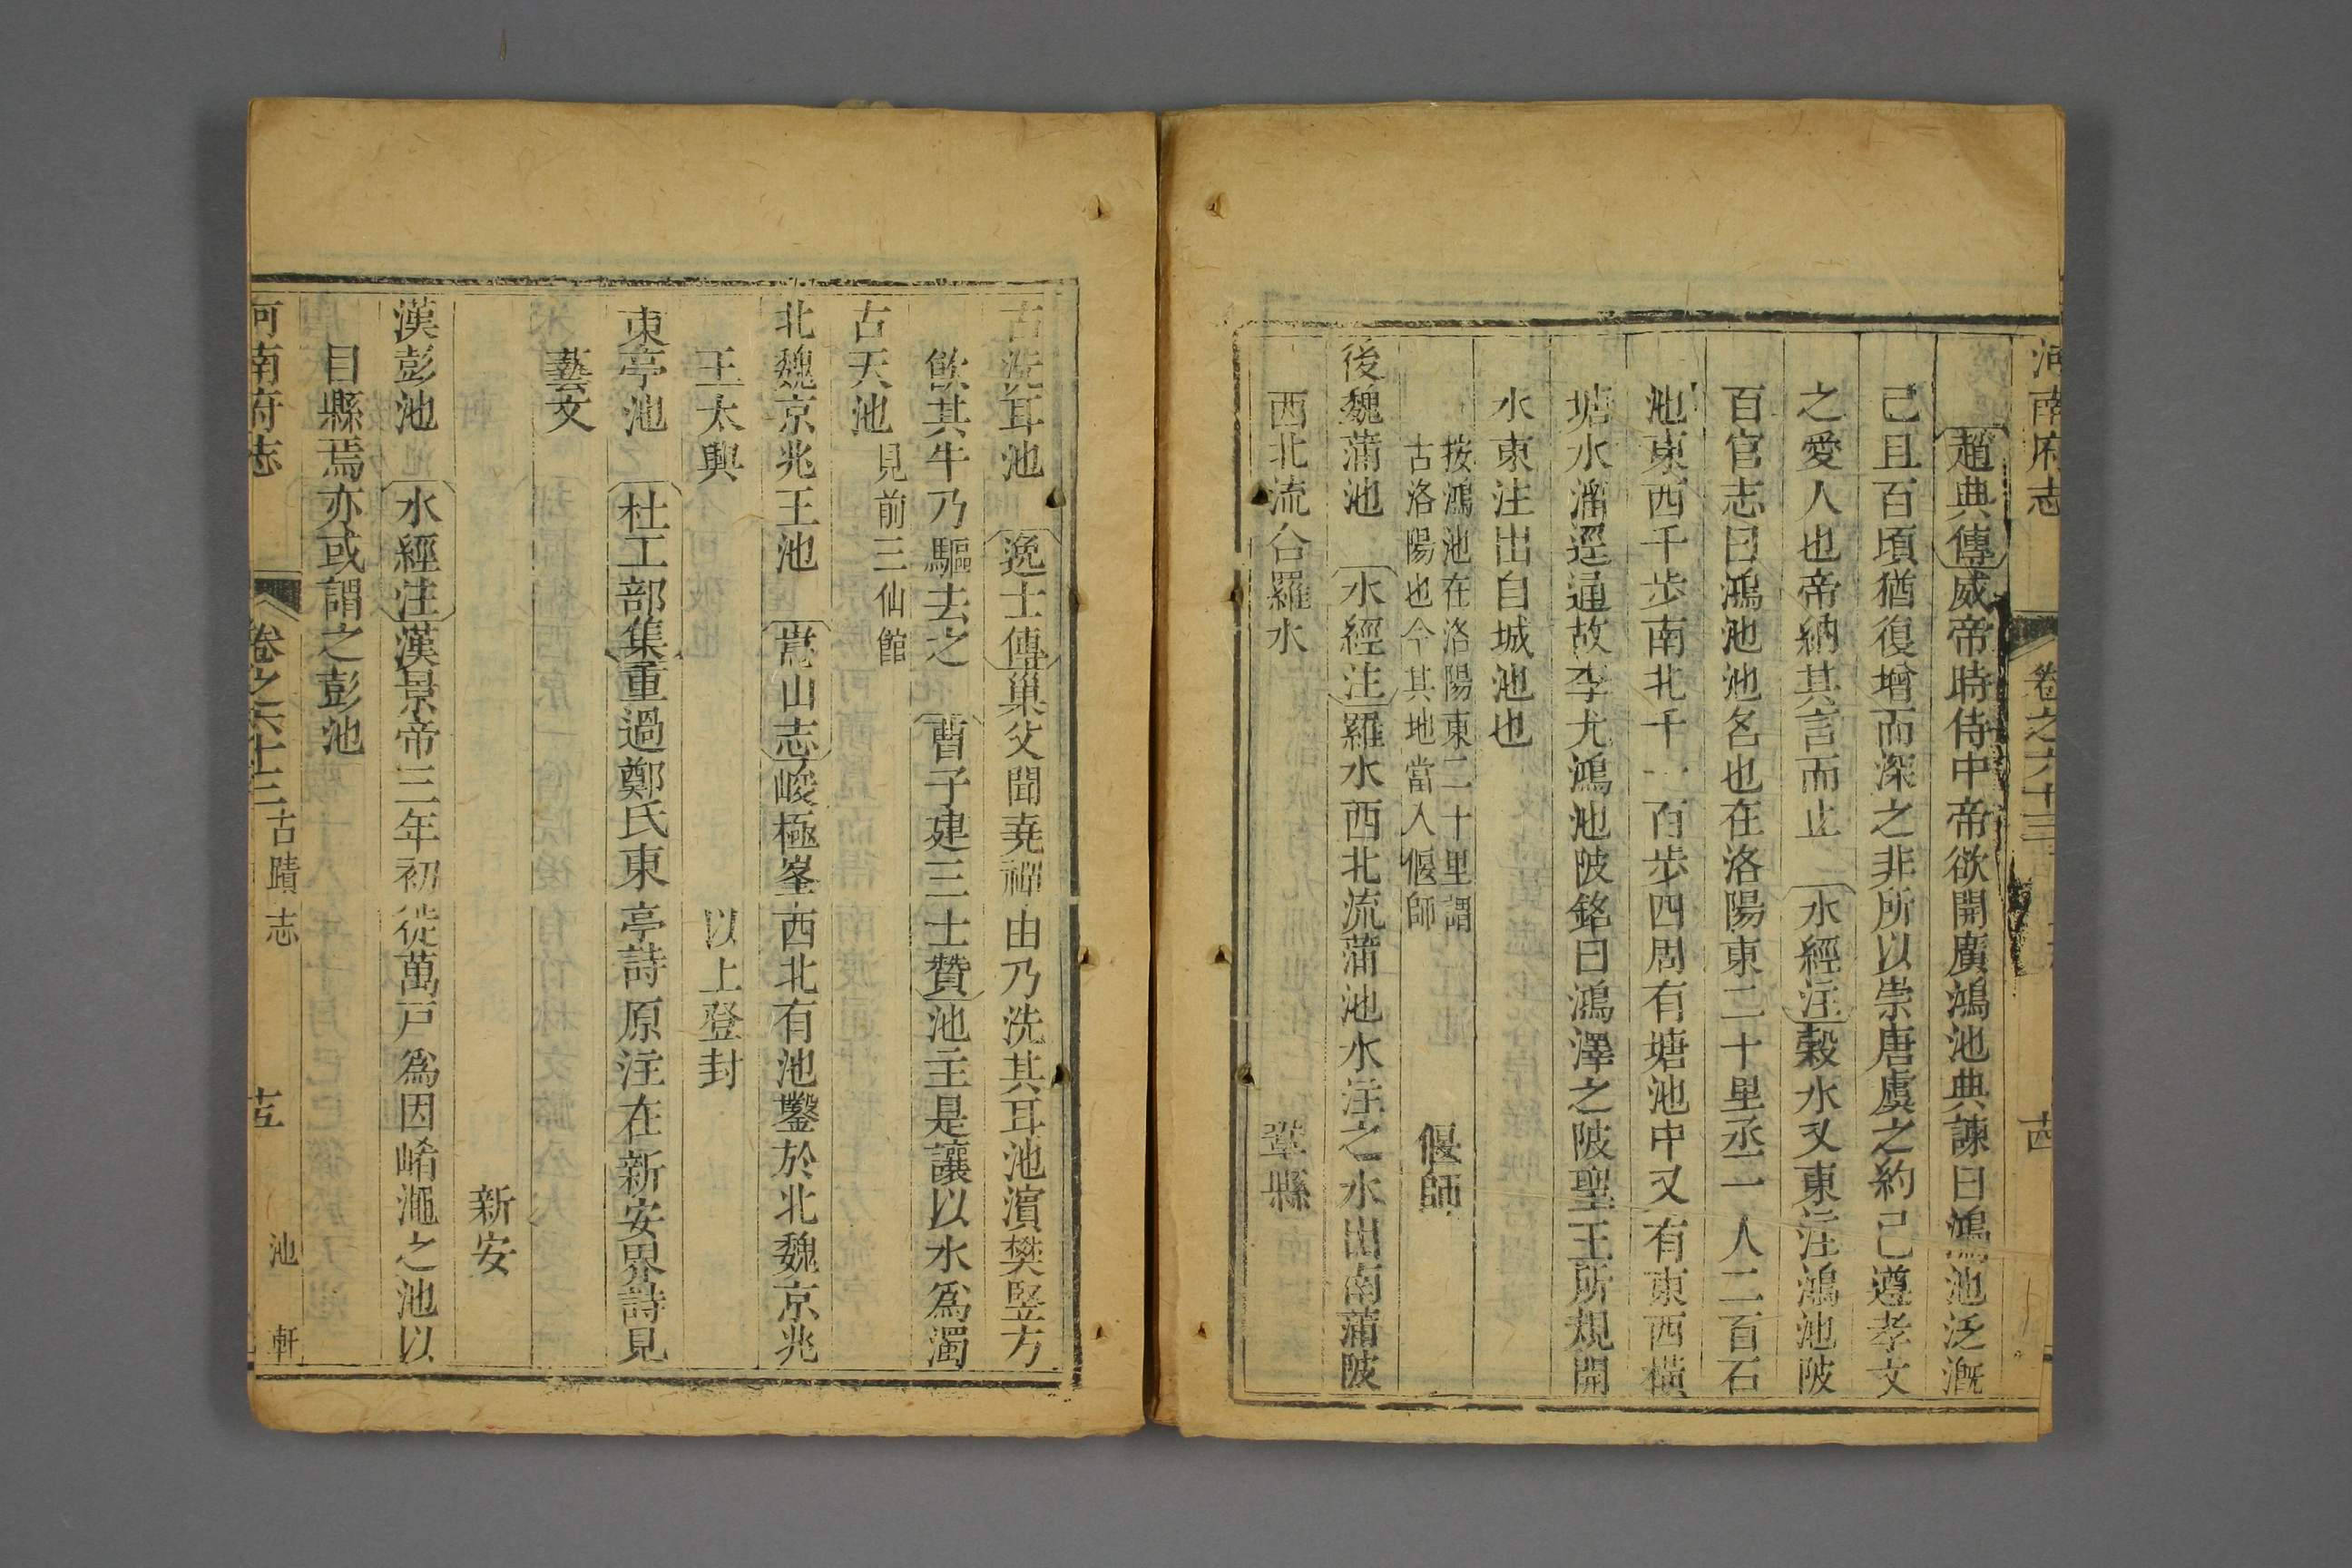 河南府志 卷之六十三
趙典傳威帝時侍中帝欲開廣鴻池典諫曰鴻池泛漑
己且百頃猶復增而深之非所以崇唐虞之約己遵孝文
之愛人也帝納其言而止 水經注穀水又東注鴻池陂
百官志曰鴻池池名也在洛陽東二十里丞一人二百石
池東西千步南北千一百步四周有塘池中又有東西橫
塘水溜逕通故李尤鴻池陂銘曰鴻澤之陂聖王所規開
水東注出自城池也
按鴻池在洛陽東二十里謂
古洛陽也今其地當入偃師
偃師
後魏蒲池 水經注羅水西北流蒲池水注之水出南蒲陂
西北流合羅水
鞏縣
古洗耳池 逸士傳巢父聞堯禪由乃洗其耳池濱樊竪方
飲其牛乃驅去之 曹子建三士贊池主是讓以水爲濁
古天池 見前三仙館
北魏京兆王池 嵩山志峻極峯西北有池鑿於北魏京兆
王太興 以上登封
東亭池 杜工部集重過鄭氏東亭詩原注在新安界詩見
藝文
新安
漢彭池 水經注漢景帝三年初徙萬戸爲因崤澠之池以
目縣焉亦或謂之彭池
河南府志 卷之六十三 古蹟志 池 軒